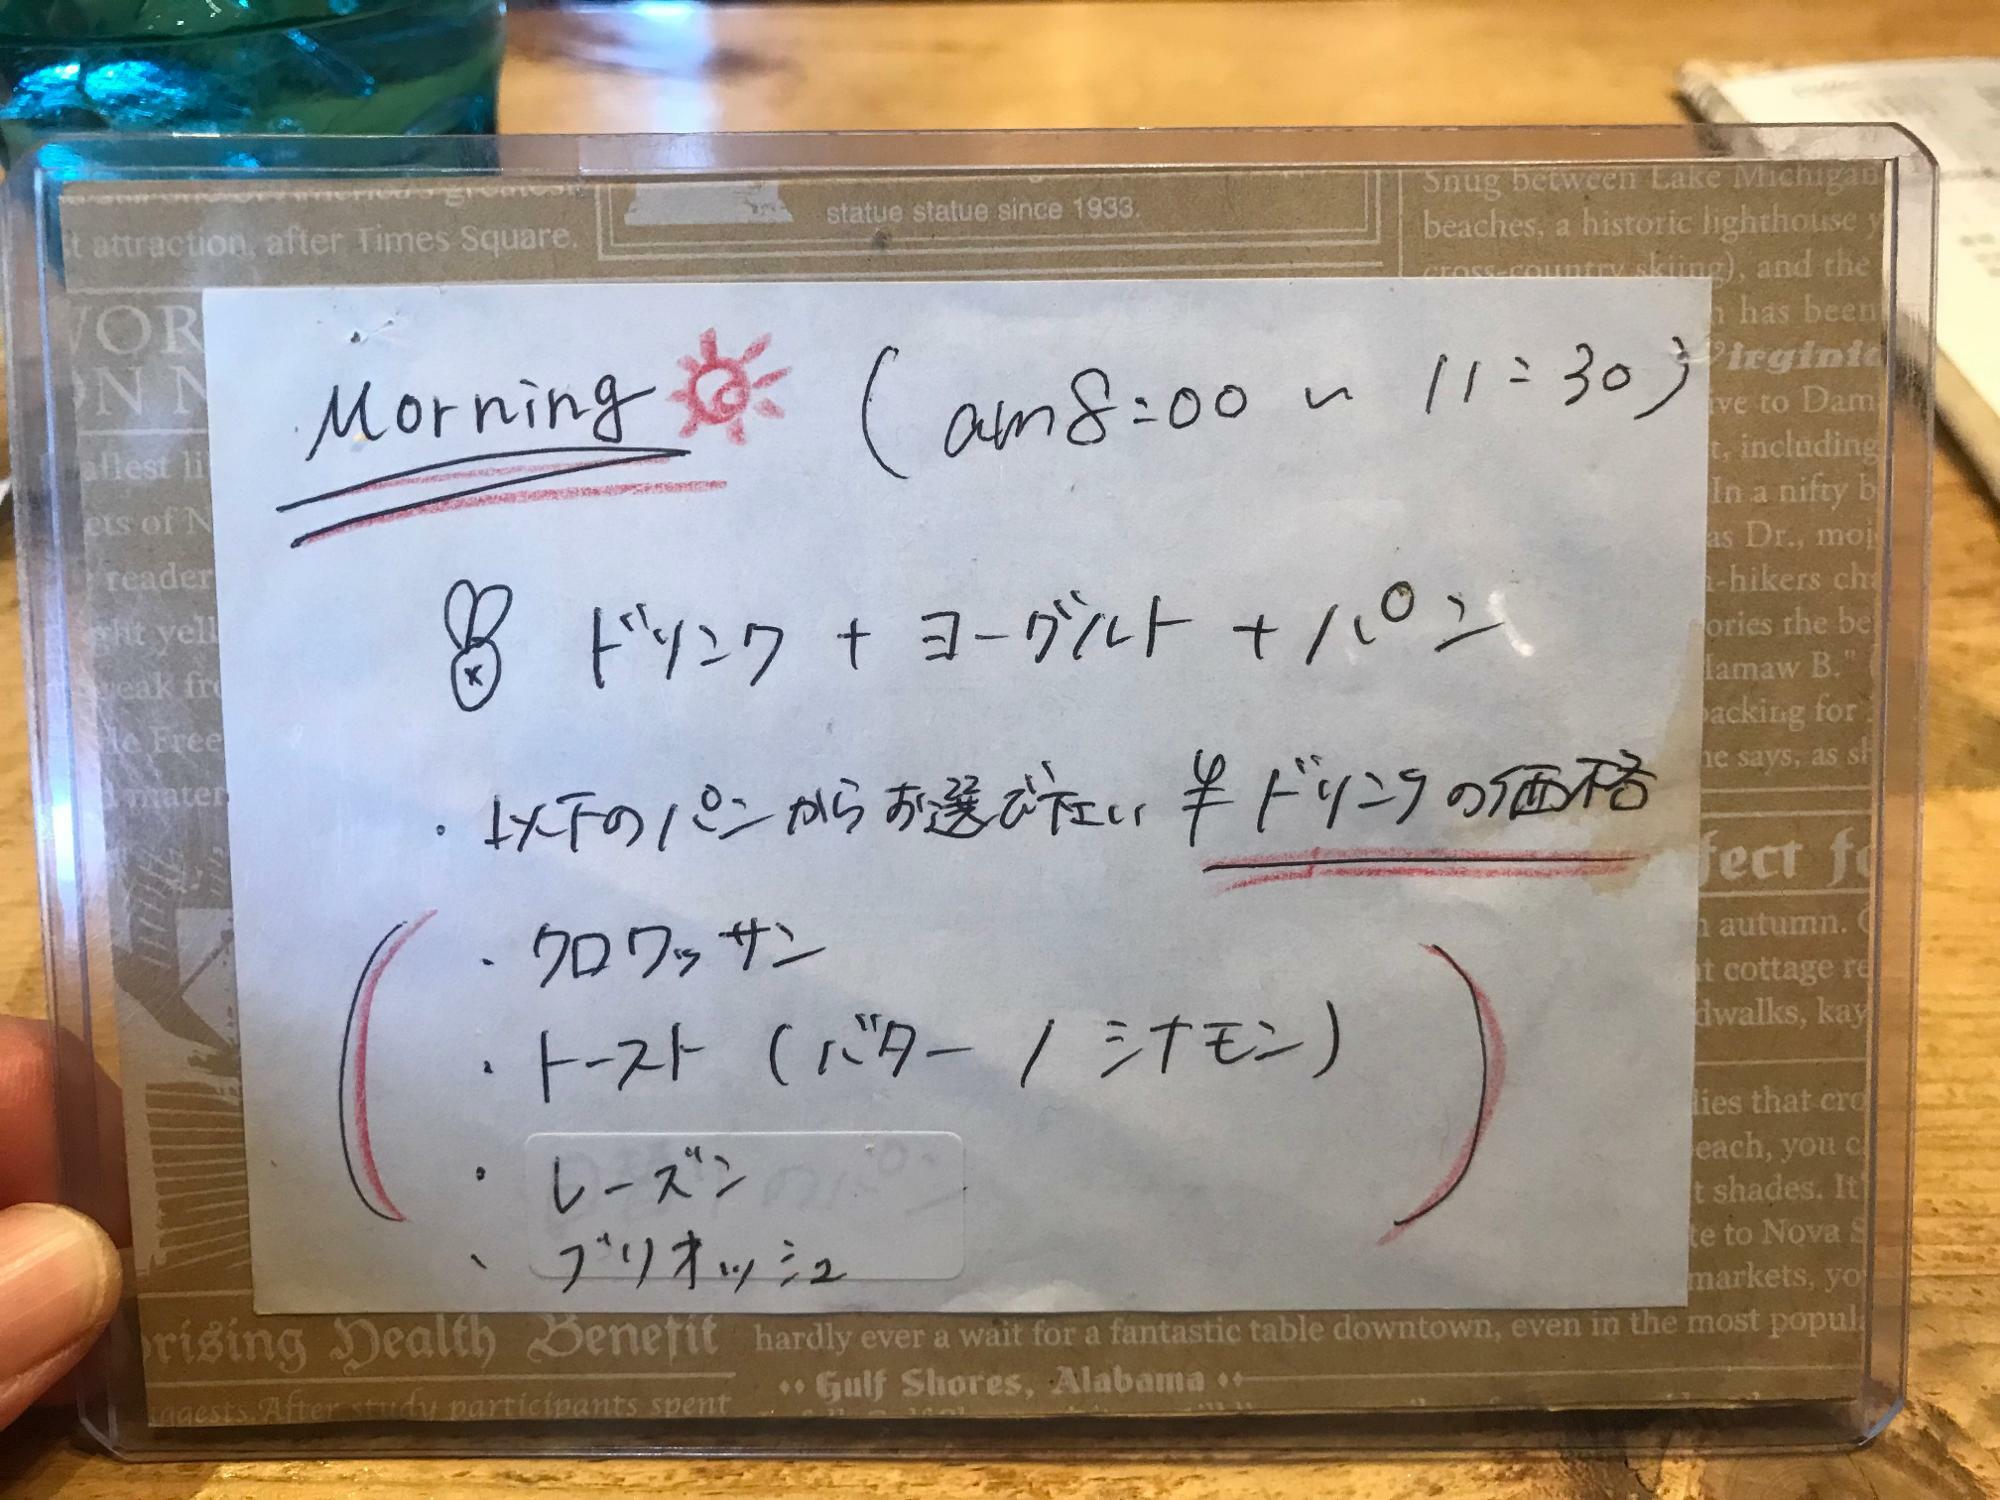 statue statue since 1933.
t attraction, after Times Square.
Snug between Lake Michigan
beaches, a historic lighthouse y
cross-country skiing), and the
has been
Virginia
ive to Dam
t, including
In a nifty b
as Dr., moj
-hikers cha
ories the be
Mamaw B."
packing for
he says, as sh
fect fo
autumn. C
t cottage re
dwalks, kay
lies that cro
each, you c
t shades. It'
te to Nova S
markets, yo
ON N
allest li
ets of N
reader
ght yell
eak fro
le Free
mater
Morning (am8:00 ~ 11:30)
ドリンク + ヨーグルト + パン
・以下のパンからお選び下さい ※ドリンクの価格
・クロワッサン
・トースト (バター / シナモン)
・レーズン
・ブリオッシュ
rising Health Benefit
hardly ever a wait for a fantastic table downtown, even in the most popul
Gulf Shores, Alabama
uggests. After study participants spent